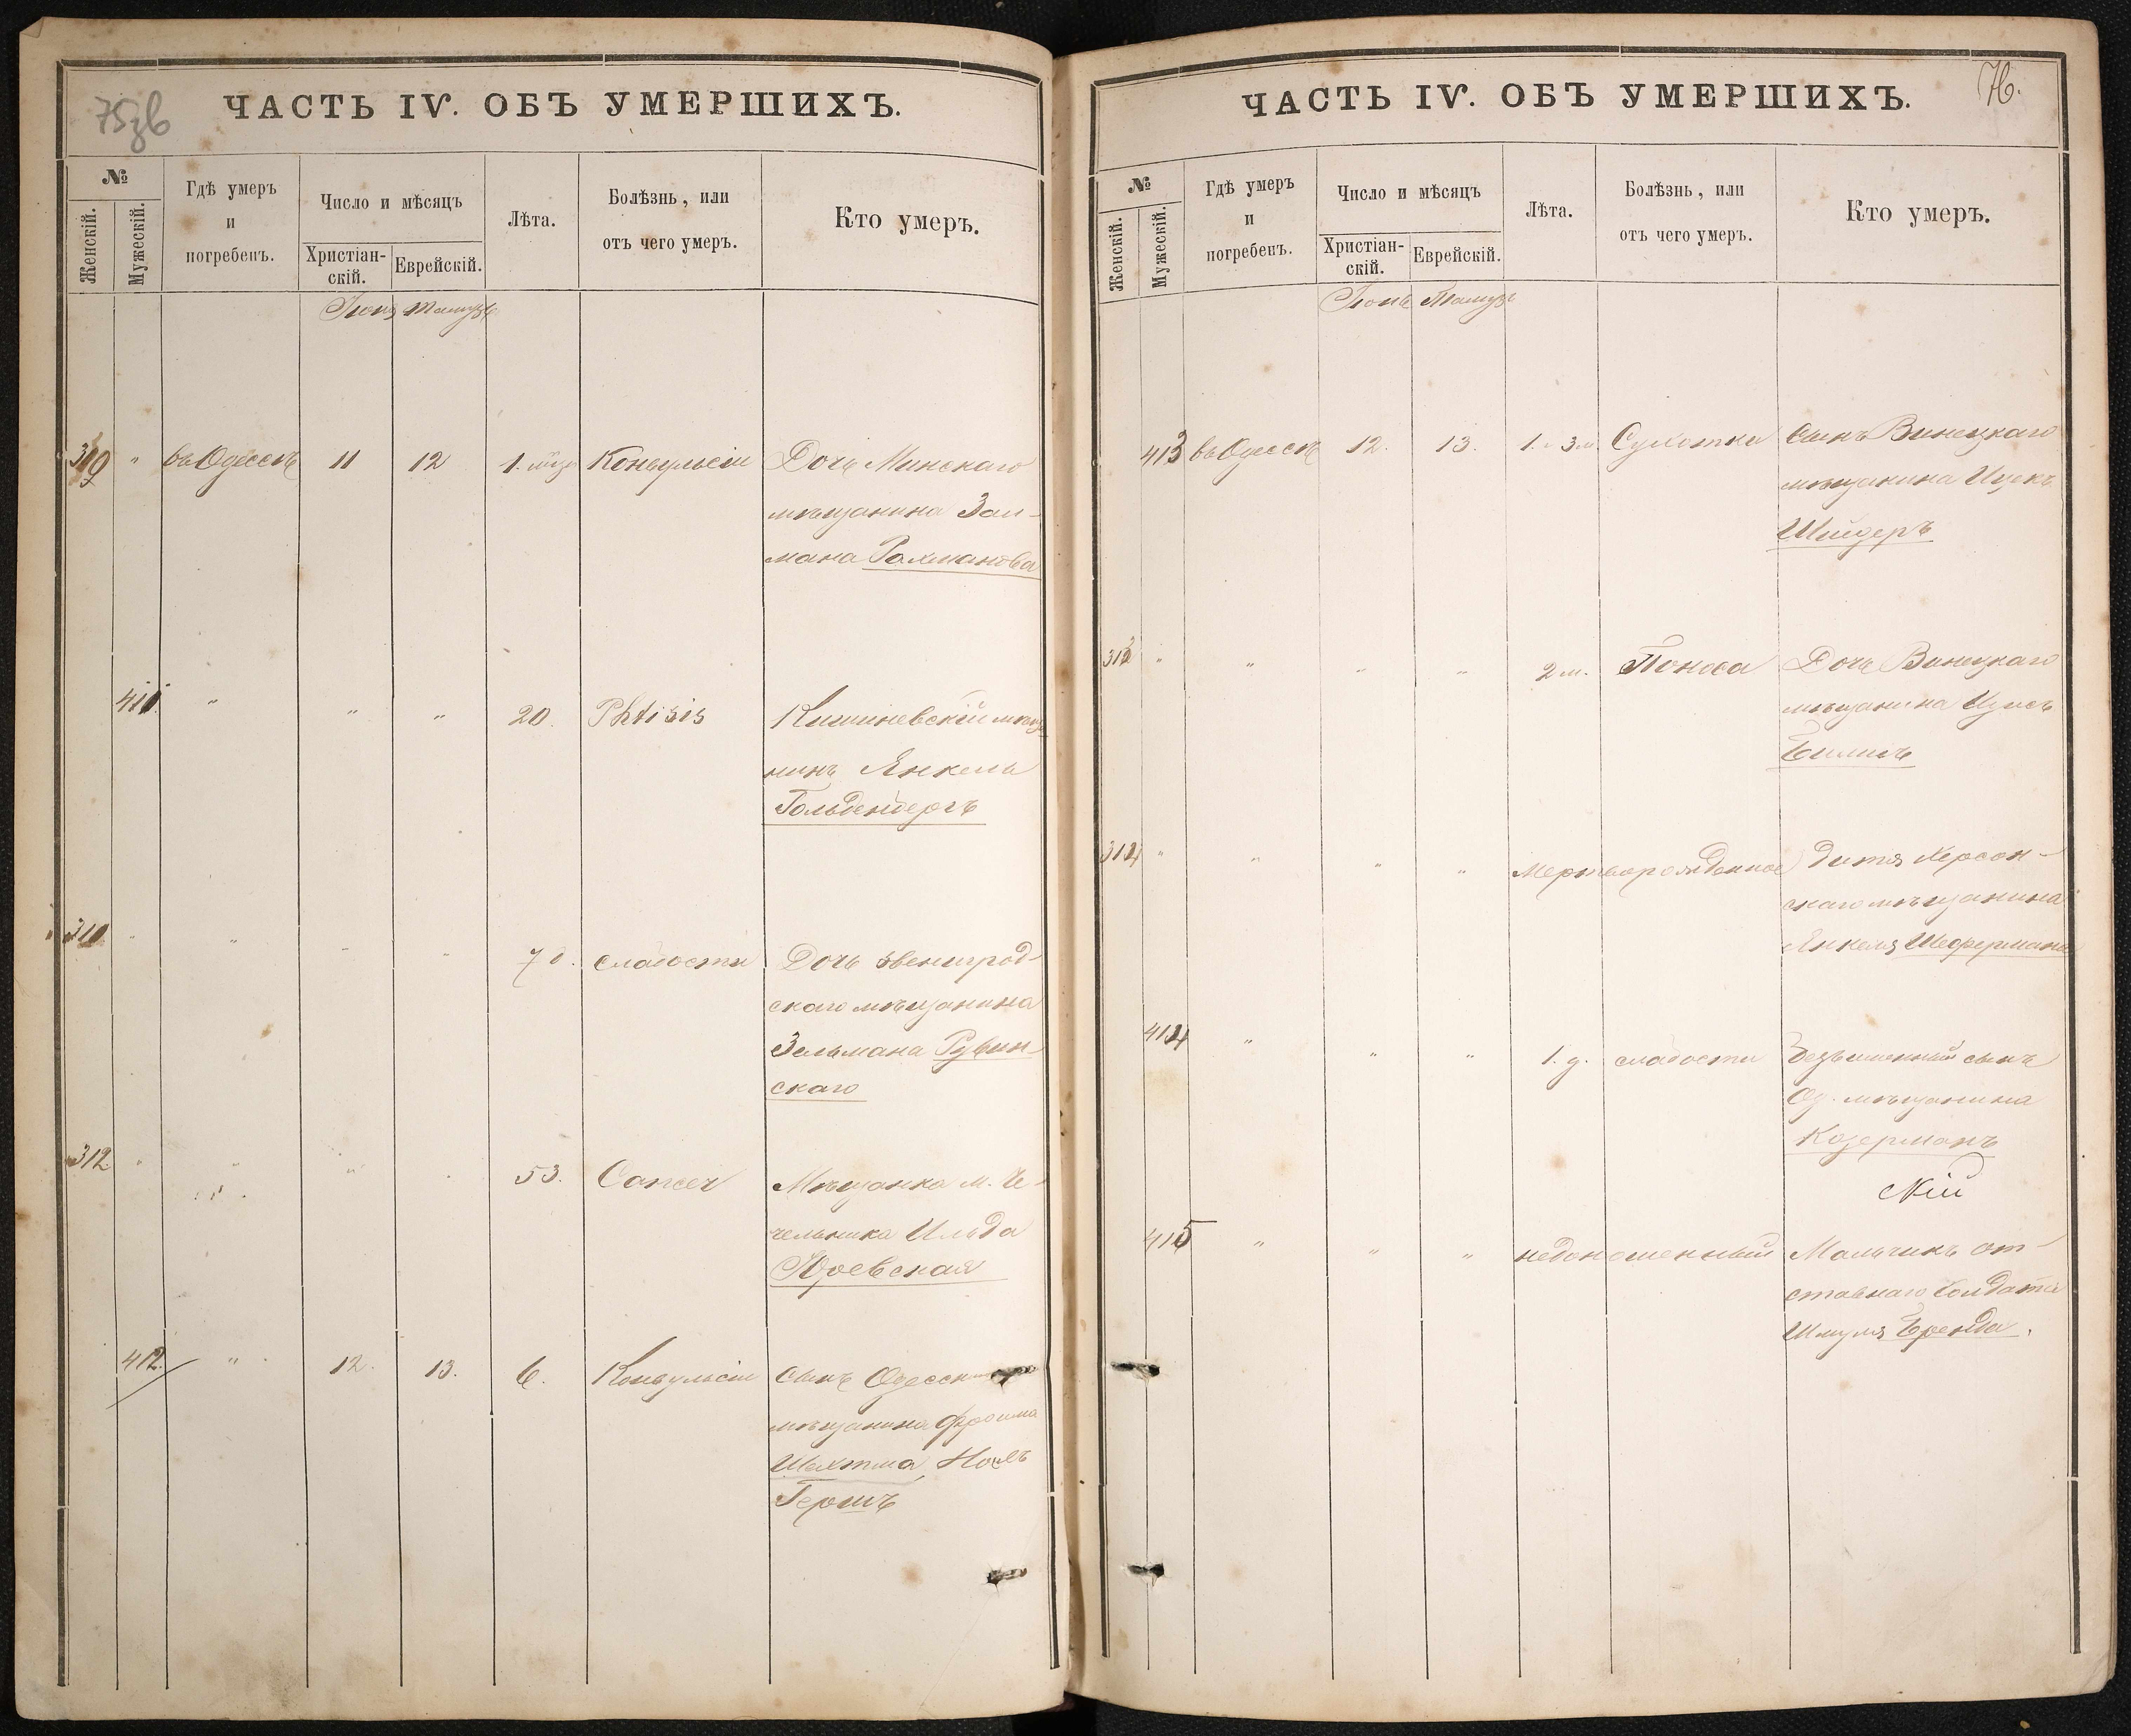 75зв
ЧАСТЬ IV. ОБЪ УМЕРШИХЪ.
№
Женскій.
Мужескій.
Гдѣ умеръ
и
погребенъ.
Число и мѣсяцъ
Христіан-
скій.
Еврейскій.
Лѣта.
Болѣзнь, или
отъ чего умеръ.
Кто умеръ.
Іюня Тамузъ
309 " въ Одессѣ 11 12 1. Конвульсіи Дочь Минскаго
мѣщанина Зал-
мана Рахманова
411. " " " 20. Phtisis Кишиневскій мѣща
нинъ Янкель
Гольденбергъ
310 " " " " 70. слабости Дочь Звенигрод-
скаго мѣщанина
Зельмана Рувин-
скаго
312 " " " " 53. Cancer Мѣщанка м. Че-
чельника
412. " 12. 13. 6. Конвульсіи сынъ Одесск
мѣщанина Фроима
Шехтма Ноехъ
Гершъ
76.
ЧАСТЬ IV. ОБЪ УМЕРШИХЪ.
№
Женскій.
Мужескій.
Гдѣ умеръ
и
погребенъ.
Число и мѣсяцъ
Христіан-
скій.
Еврейскій.
Лѣта.
Болѣзнь, или
отъ чего умеръ.
Кто умеръ.
Іюнь Тамузъ
413 въ Одессѣ 12. 13. 1. 3 м Сухотки Сынъ Винецкаго
мѣщанина Ицекъ
Шнидеръ
313 " " " " 2 м. Поноса Дочь Винецкаго
мѣщанина
314 " " " " Мертворожденное Дитя Херсон-
скаго мѣщанина
Янкеля Шеферман
414 " " " 1. д. слабости Безъименный сынъ
Од. мѣщанина
Козерманъ
скій
415 " " " недоношенный Мальчикъ от-
ставнаго солдата
Шмуля Бренда.